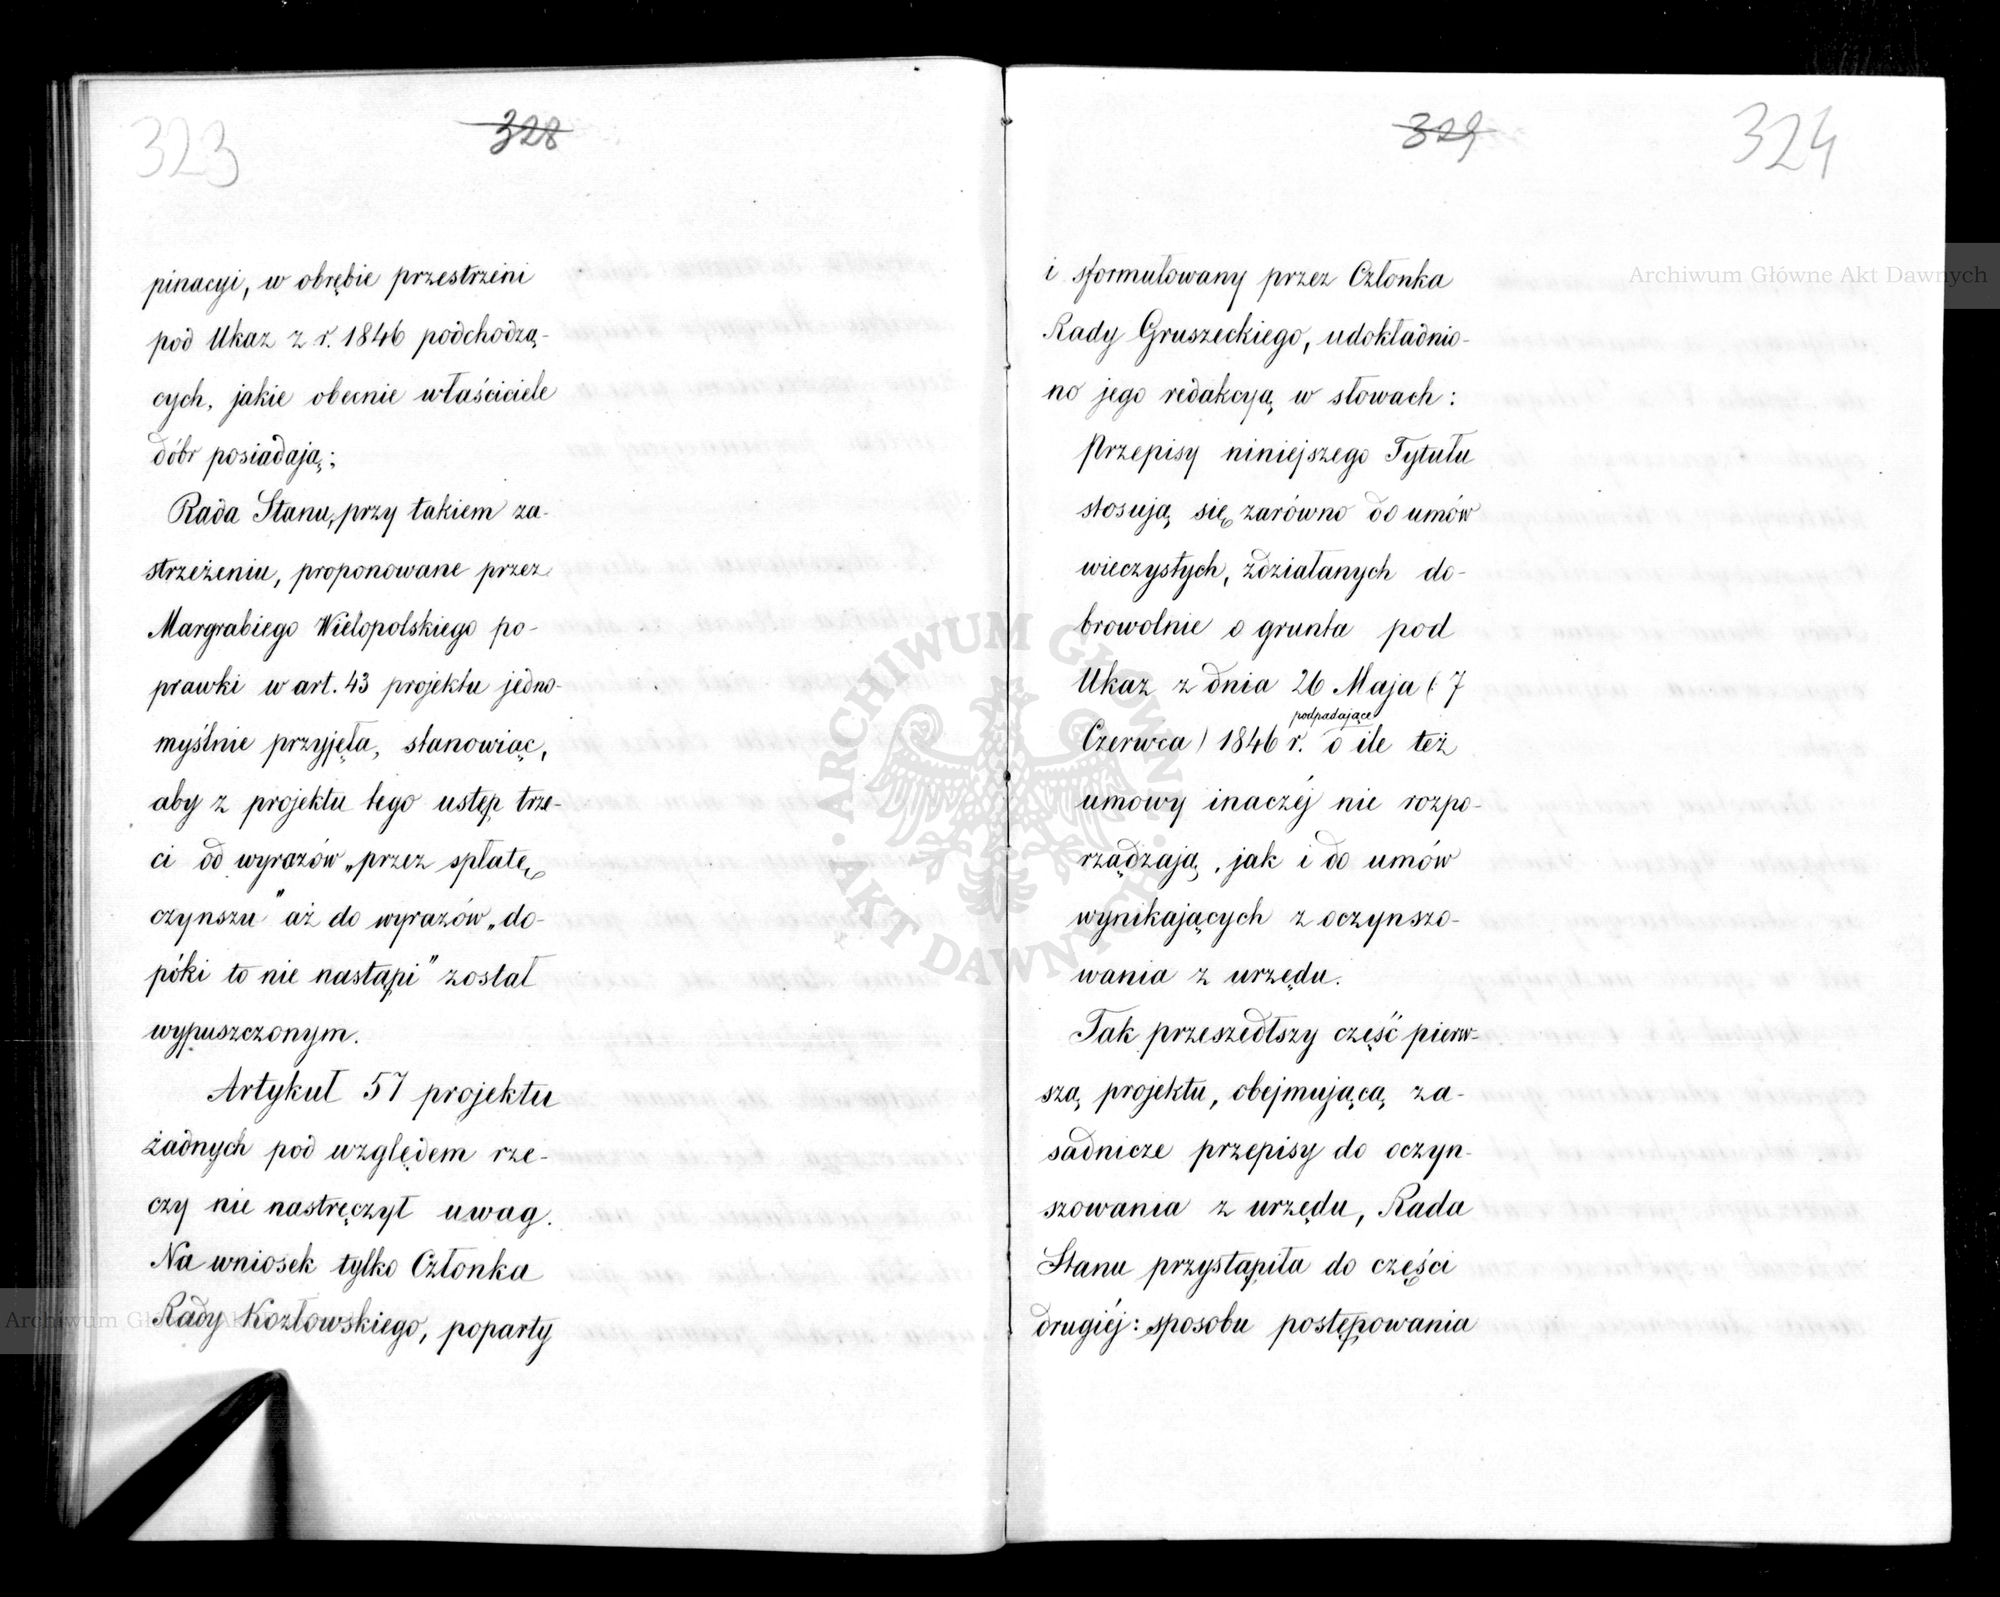 323
328
pinacyi, w obrębie przestrzeni
pod Ukaz z r. 1846 podchodzą-
cych, jakie obecnie właściciele
dóbr posiadają;
Rada Stanu, przy takiem za-
strzeżeniu, proponowane przez
Margrabiego Wielopolskiego po-
prawki w art. 43 projektu jedno-
myślnie przyjęła, stanowiąc,
aby z projektu tego ustęp trze-
ci od wyrazów „przez spłatę
czynszu" aż do wyrazów „do-
póki to nie nastąpi" został
wypuszczonym.
Artykuł 57 projektu
żadnych pod względem rze-
czy nie nastręczył uwag.
Na wniosek tylko Członka
Rady Kozłowskiego, poparty
329
324
i sformułowany przez Członka
Rady Gruszeckiego, udokładnio-
no jego redakcyą w słowach:
Przepisy niniejszego Tytułu
stosują się zarówno do umów
wieczystych, zdziałanych do-
browolnie o grunta pod
Ukaz z dnia 26 Maja (7
podpadające
Czerwca) 1846 r. o ile też
umowy inaczéj nie rozpo-
rządzają, jak i do umów
wynikających z oczynszo-
wania z urzędu.
Tak przeszedłszy część pierw-
szą projektu, obejmującą za-
sadnicze przepisy do oczyn-
szowania z urzędu, Rada
Stanu przystąpiła do części
drugiéj: sposobu postępowania
Archiwum Główne Akt Dawnych
Archiwum Główne Akt Dawnych
ARCHIWUM GŁÓWNE · AKT DAWNYCH ·